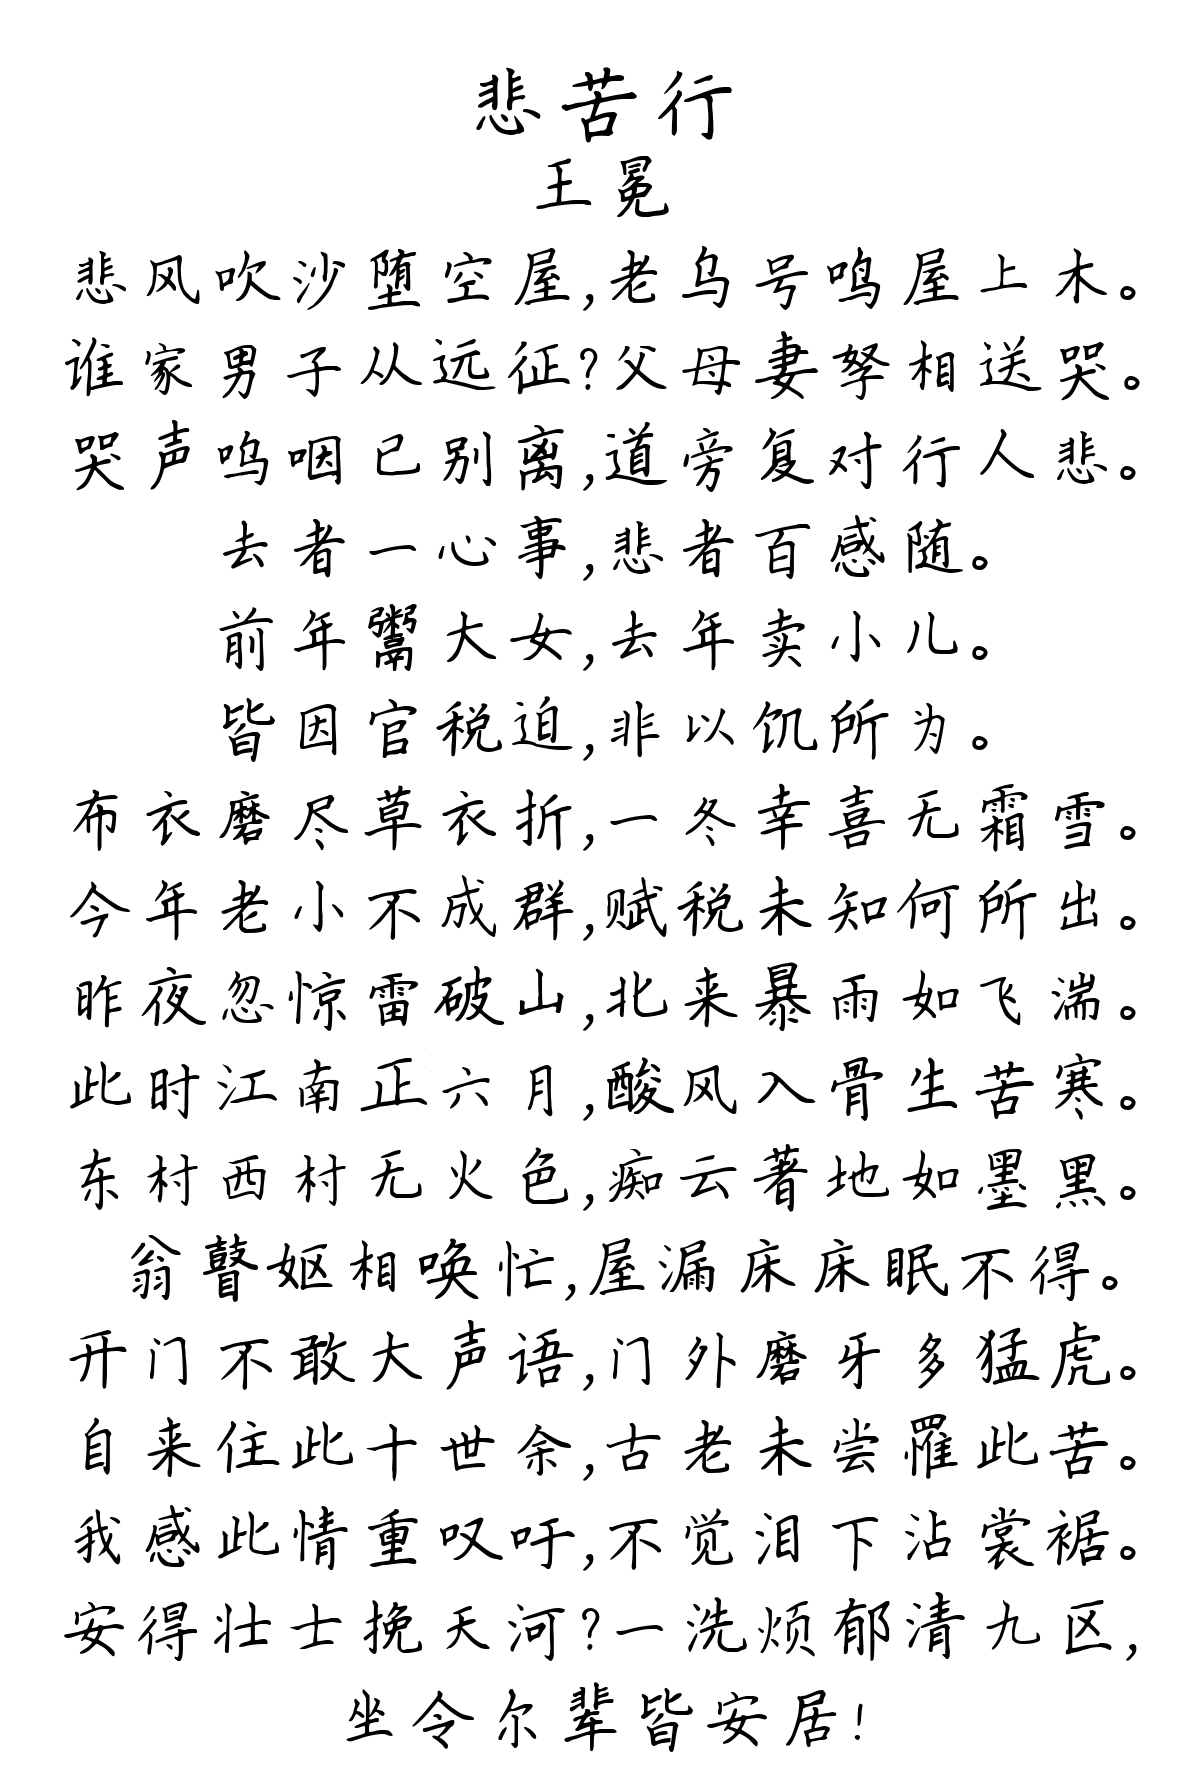 悲苦行
王冕
悲风吹沙堕空屋,老乌号鸣屋上木。
谁家男子从远征?父母妻孥相送哭。
哭声呜咽已别离,道旁复对行人悲。
去者一心事,悲者百感随。
前年鬻大女,去年卖小儿。
皆因官税迫,非以饥所为。
布衣磨尽草衣折,一冬幸喜无霜雪。
今年老小不成群,赋税未知何所出。
昨夜忽惊雷破山,北来暴雨如飞湍。
此时江南正六月,酸风入骨生苦寒。
东村西村无火色,痴云著地如墨黑。
翁瞽妪相唤忙,屋漏床床眠不得。
开门不敢大声语,门外磨牙多猛虎。
自来住此十世余,古老未尝罹此苦。
我感此情重叹吁,不觉泪下沾裳裾。
安得壮士挽天河?一洗烦郁清九区,
坐令尔辈皆安居!